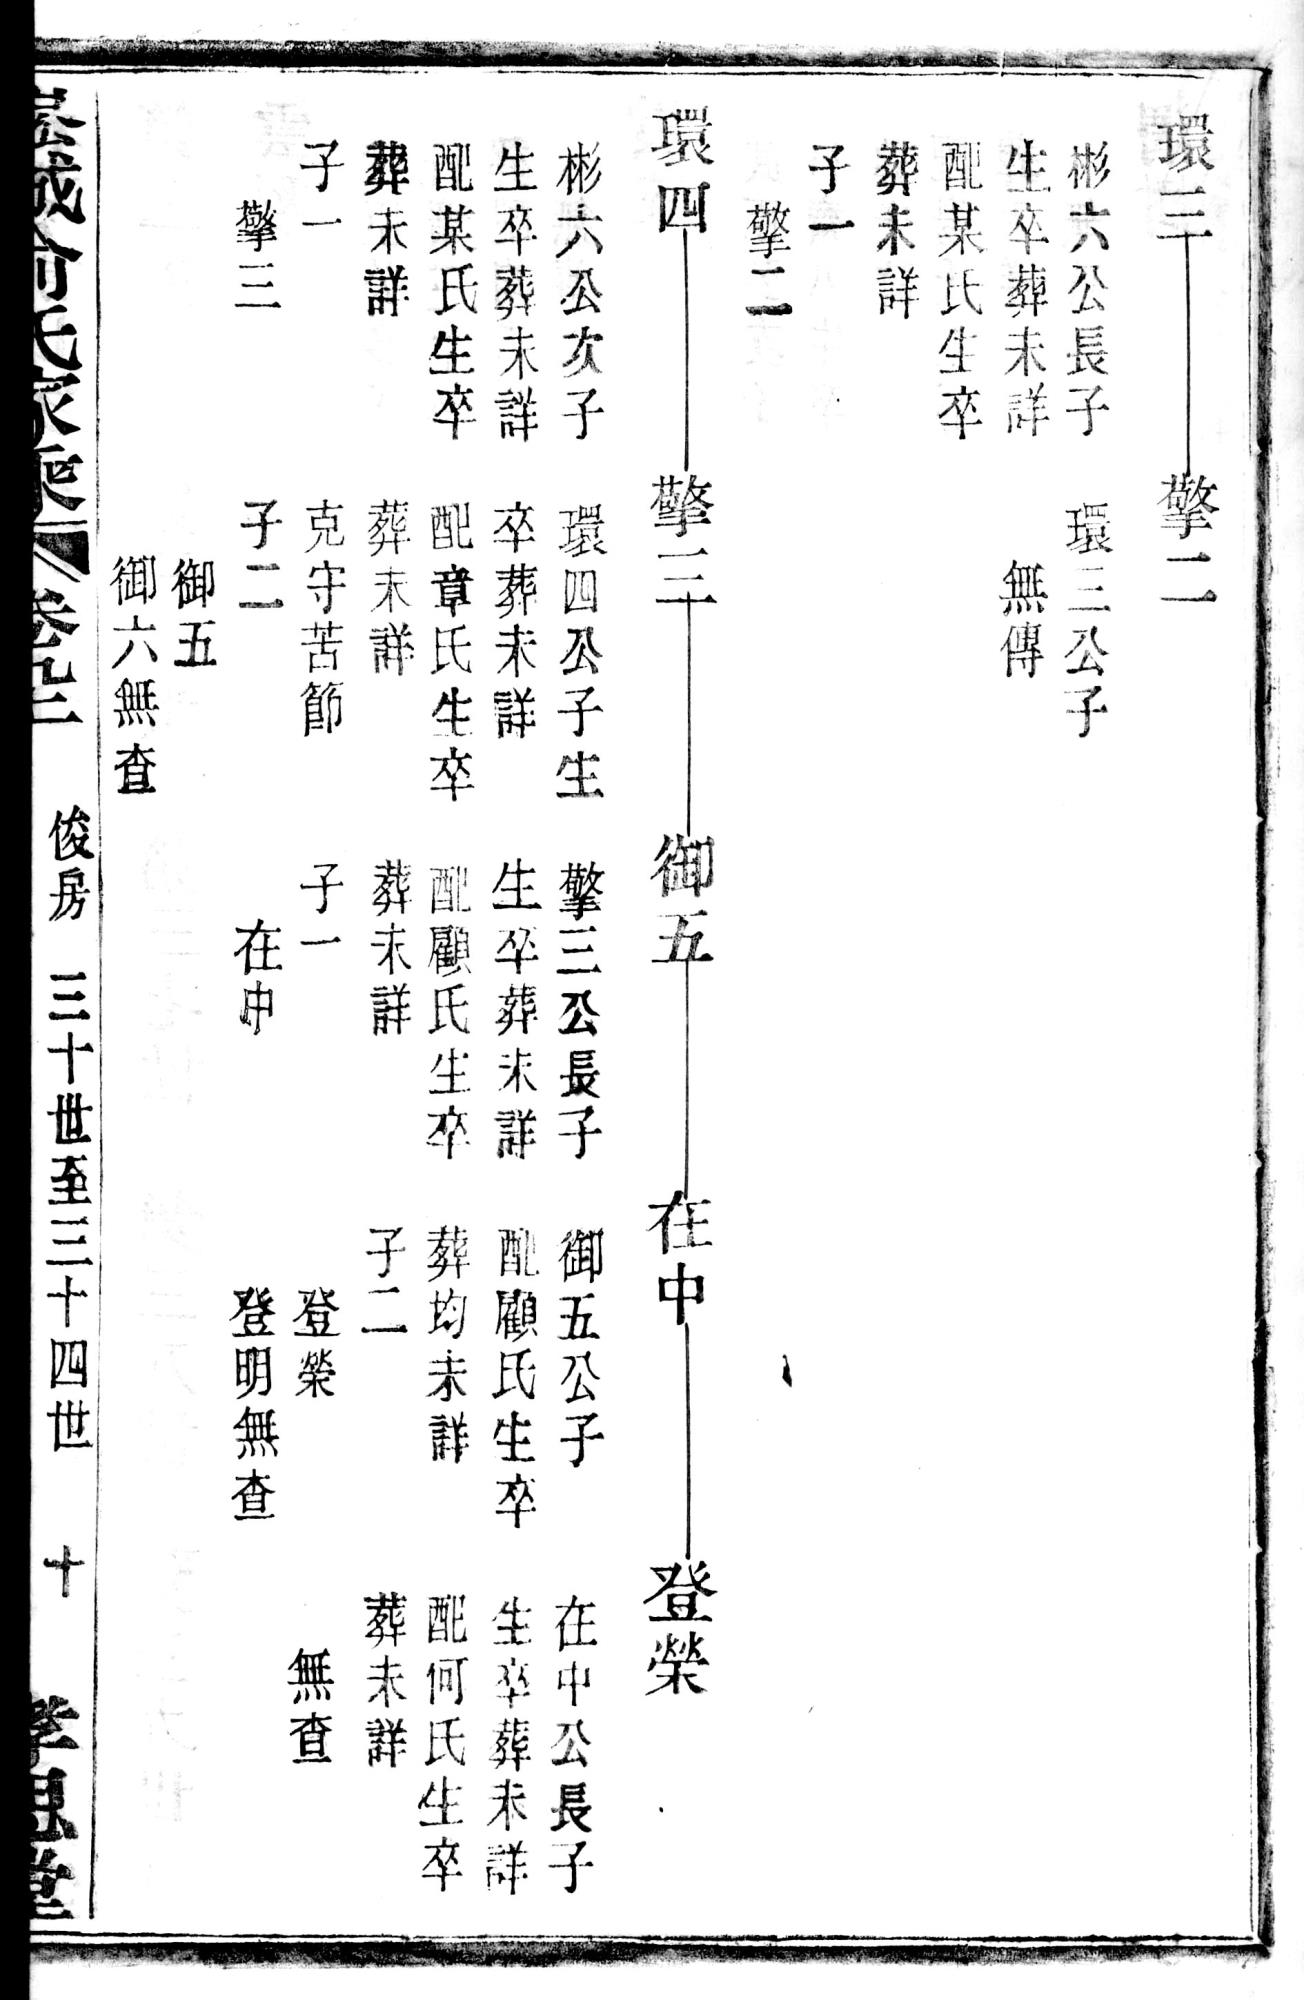 環三
擎二
彬六公長子
生卒葬未詳
配某氏生卒
葬未詳
子一
擎二
環三公子
無傳
環四
擎三
御五
在中
登榮
彬六公次子
生卒葬未詳
配某氏生卒
葬未詳
子一
擎三
環四公子生
卒葬未詳
配章氏生卒
葬未詳
克守苦節
子二
御五
御六無查
擎三公長子
生卒葬未詳
配顧氏生卒
葬未詳
子一
在中
御五公子
配顧氏生卒
葬均未詳
子二
登榮
登明無查
在中公長子
生卒葬未詳
配何氏生卒
葬未詳
無查
俞氏家乘
俊房 三十世至三十四世 十
孝思堂